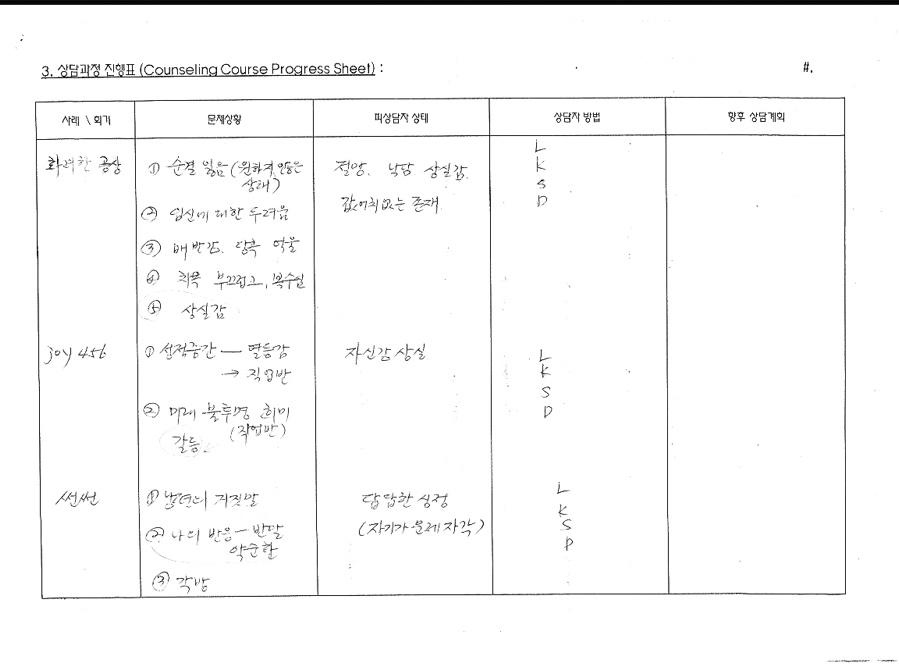 3. 상담과정 진행표 (Counseling Course Progress Sheet) : #.
사례 \ 회기 문제상황 피상담자 상태 상담자 방법 향후 상담계획
화려한 공상
① 순결 잃음 (원하지 않은
상태)
② 임신에 대한 두려움
③ 배반감, 당혹 억울
④ 죄목 부끄럽고, 복수심
⑤ 상실감
절망, 낙담 상실감.
값어치없는 존재.
L
K
S
D
joy 456
① 성적중간 — 열등감
→ 직업반
② 미래 불투명 희미
(직업반)
갈등.
자신감 상실
L
K
S
D
썬썬
① 남편의 거짓말
② 나의 반응 — 반발
악순환
③ 각방
답답한 심정
(자기가 문제 자각)
L
K
S
D